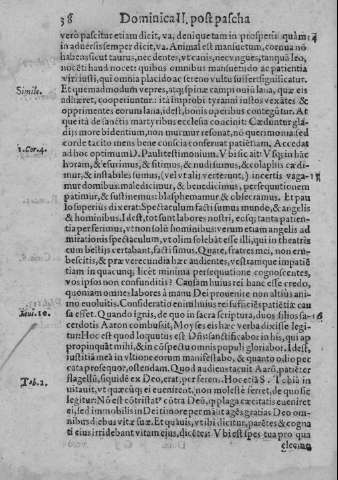 38 Dominica II. post pascha
vero pascitur etiam dicit, va, denique tam in prosperis quàm 4
in adversis semper dicit, va. Animal est mansuetum, cornua nõ
habens sicut taurus, nec dentes, ut canis, nec vngues, tanquã leo,
nocēti haud nocet: quibus omnibus mansuetudo ac patientia
viri iusti, qui omnia placido ac sereno vultu suffert significatur.
Simile. Et quemadmodum vepres, atq; spinæ campi ouiũ lana, quæ eis
adhæret, cooperiuntur: ita improbi tyranni iustos vexātes &
opprimentes eorum lana, idest, bonis operibus contegūtur. At
que ita de sanctis martyribus ecclesia concinit: Cæduntur gla-
dijs more bidentium, non murmur resonat, nõ querimonia sed
corde tacito mens bene conscia conseruat patiētiam, Accedat
1. Cor. 4. ad hoc optimum D. Pauli testimonium. V bi sic ait: V sq; in hãc
horam, & esurimus, & sitimus, & nudi sumus, & colaphis cædi-
mur, & instabiles sumus, (vel vt alij verterunt,) incertis vaga- 15
mur domibus. maledicimur, & benedicimus, persequutionem
patimur, & sustinemus: blasphemamur & obsecramus. Et pau
lo superius dixerat. Spectaculum facti sumus mundo, & angelis
& hominibus. Idest, tot sunt labores nostri, eosq; tanta patien-
tia perferimus, vt non solũ hominibus: verum etiam angelis ad
mirationis spectaculum, vt olim solebāt esse illi, qui in theatris
cum bellijs certabant, facti simus. Quare, fratres mei, non eru-
bescitis, & præ verecundia hæc audientes, vestramque impatiē
tiam in quacunq; licèt minima persequutione cognoscentes,
vos ipsos non confunditis? Causam huius rei hanc esse credo,
quoniam omnes labores à manu Dei prouenire non altius ani-
mo euoluitis. Consideratio enim huius rei sufficiēs patiētiæ cau
Leui. 10. sa esset. Quando ignis, de quo in sacra scriptura, duos filios sa- 16
cerdotis Aaron combusit, Moyses eis hæc verba dixisse legi-
tur: Hoc est quod loquutus est Dñs: sanctificabor in his, qui ap
propinquāt mihi, & in cõspectu omnis populi gloriabor. Idest,
iustitiā meā in vltione eorum manifestabo, & quanto odio pec
cata prosequor, ostendam. Quod audiens tacuit Aarõ, patiēter
flagellũ, siquidē ex Deo, erat, perferens. Hoc etiã S. Tobiã in
Tob. 2. uitauit, vt quæcũq; ei euenirent, non molestè ferret, de quo sic
legitur: Nõ est cõtristatº cõtra Deũ, q plaga cæcitatis eueniret
ei, sed immobilis in Dei timore permāsit agēs gratias Deo om-
nibus diebus vitæ suæ. Et quãuis, vt ibi dicitur, parētes & cogna
ti eius irridebant vitam ejus, dicētes: V bi est spes tua pro qua
eleemo